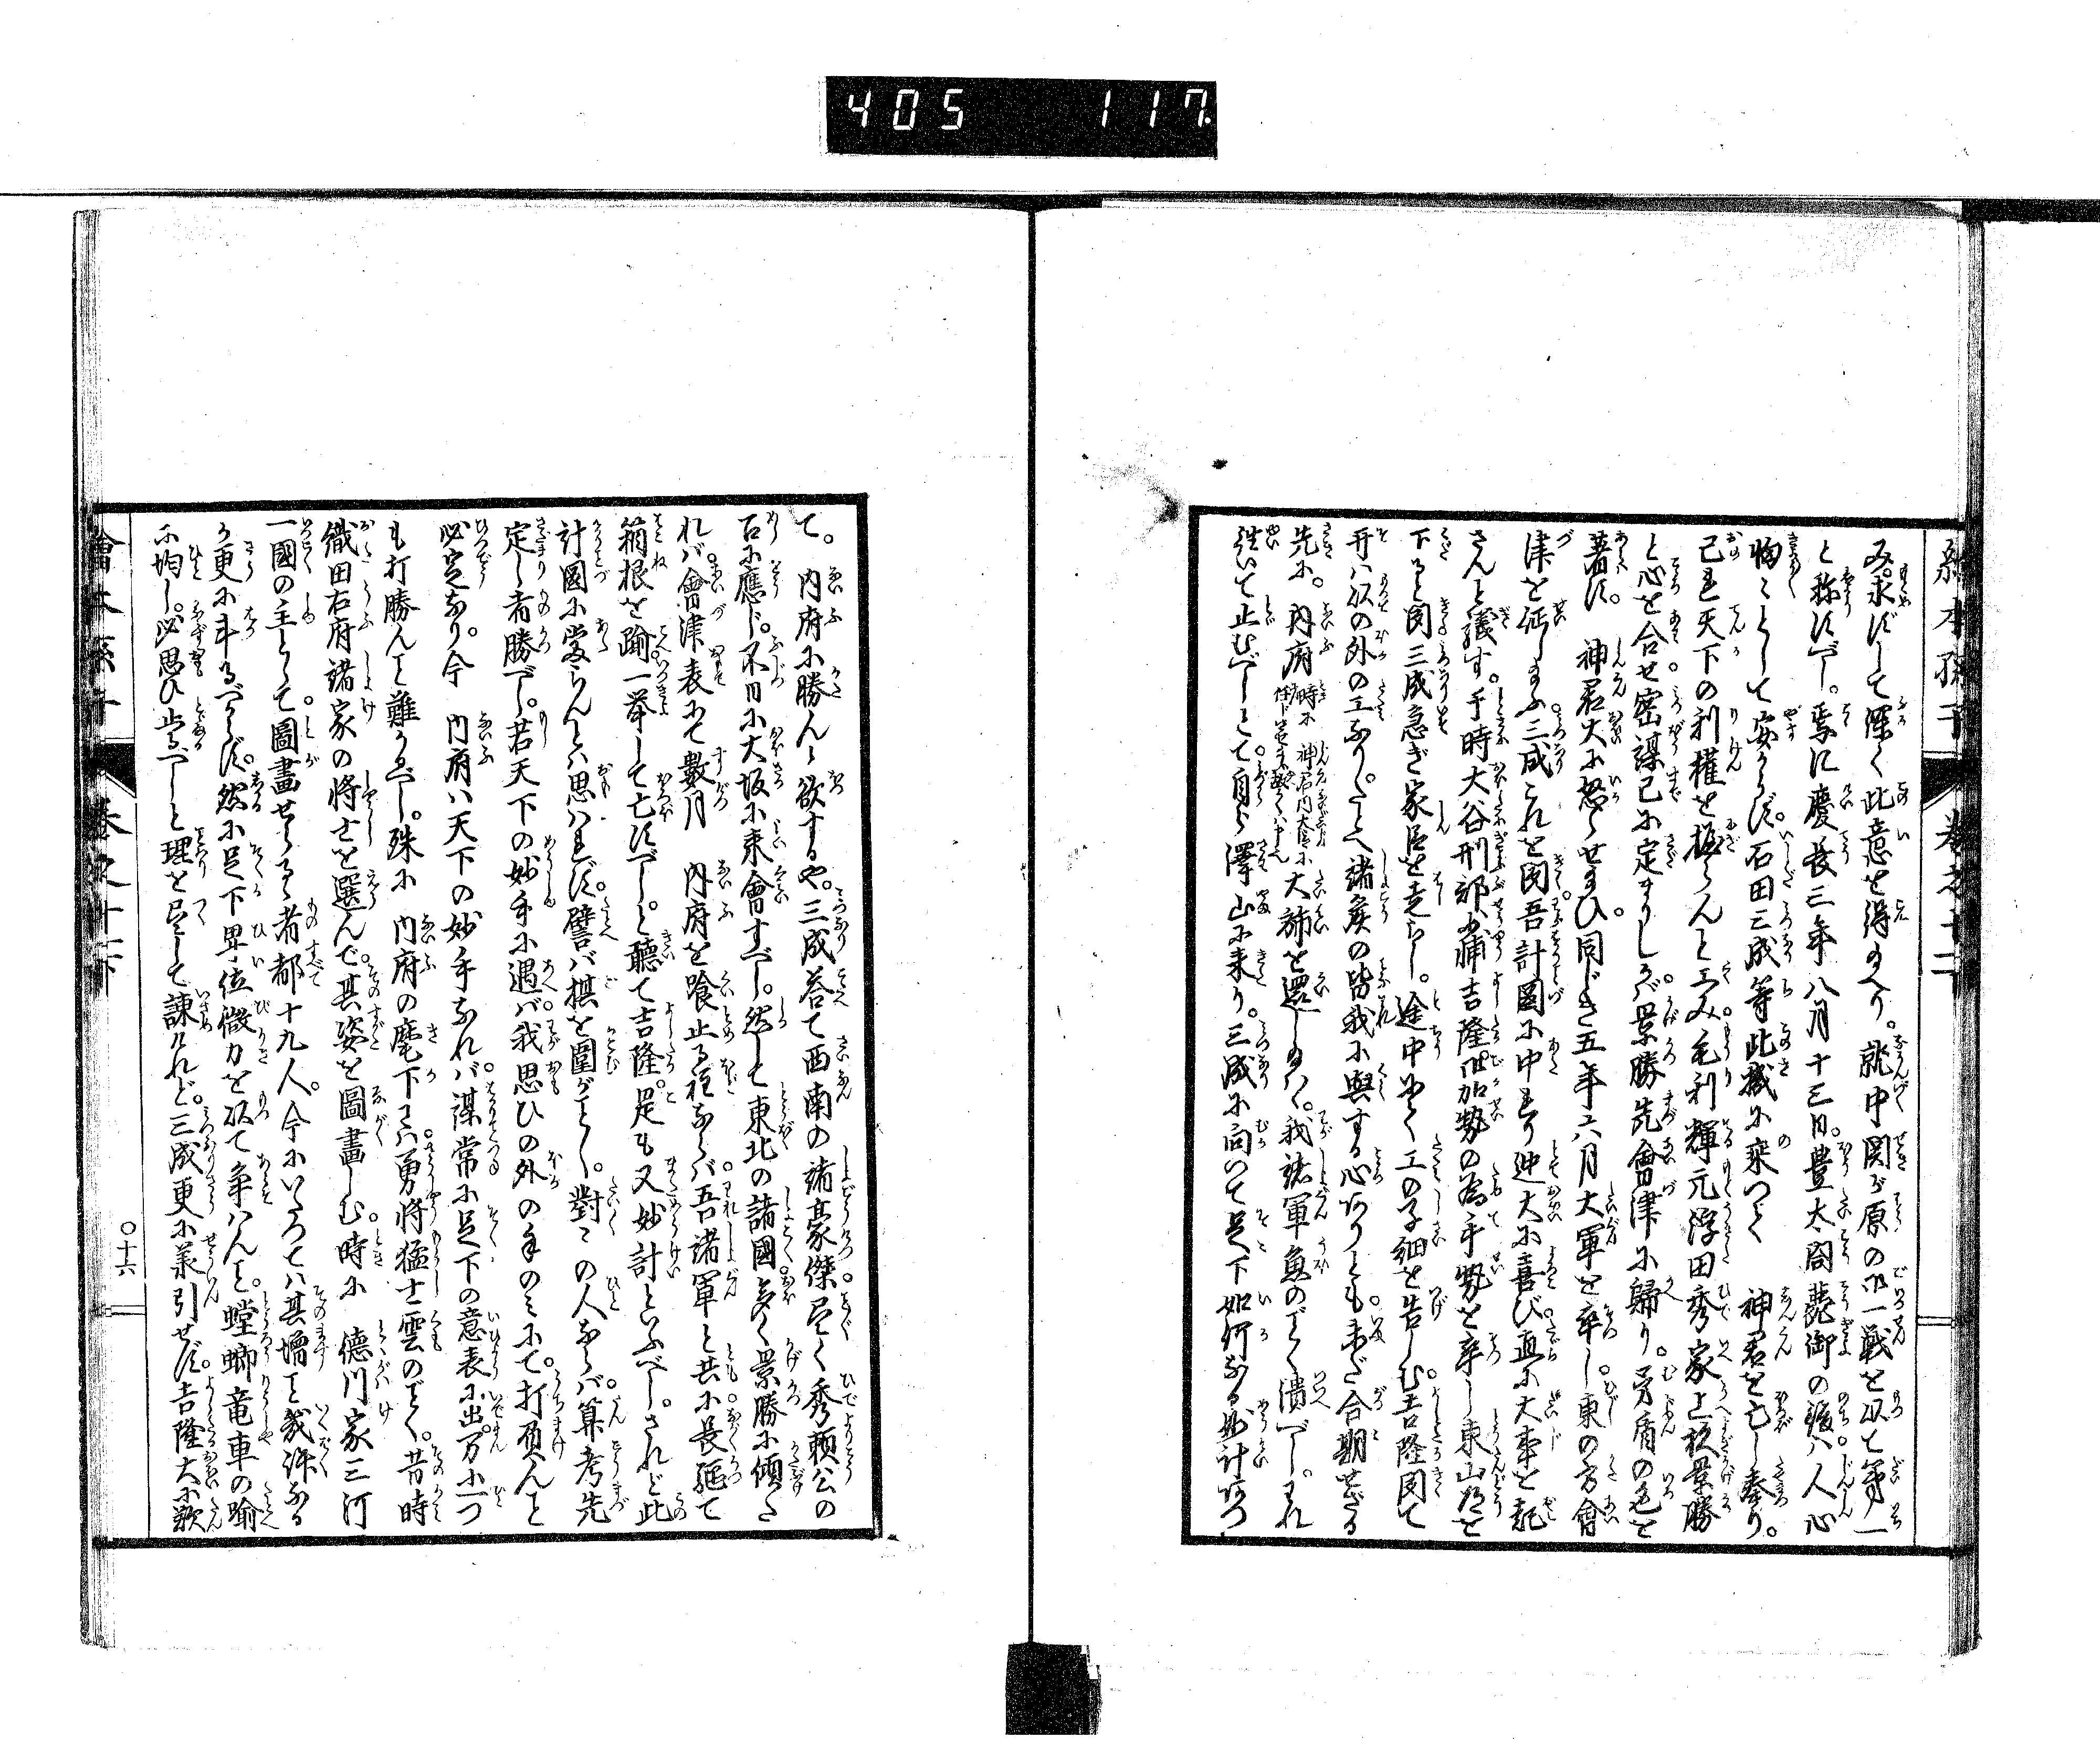 405 117
み求ずして深く此意を得玉へり。就中関が原の御一戦を以て第一
と称すべし。爰に慶長三年八月十三日。豊太閤薨御の後ハ人心
恟々として安からず。石田三成等此機に乗つて 神君を亡し奉り。
己れ天下の利権を握らんと工み毛利輝元浮田秀家上杉景勝
と心を合せ密謀已に定まりしかバ景勝先會津に歸り。矛盾の色を
著す。 神君大に怒らせ玉ひ。同じき五年六月大軍を率し。東の方會
津を征し玉ふ三成これを聞吾計圖に中れり迚大に喜び直に大事を起
さんと議す。于時大谷刑部少輔吉隆加勢の為手勢を率し東山道を
下ると聞三成急ぎ家臣を走らし。途中にて工の子細を告しむ吉隆聞て
先に。内府 大旆を還し玉ハヾ。我諸軍魚のごとく潰べし。われ
強いて止むべしとて。自ら澤山に来り。三成に向いて足下如何なる妙計あつ
て。 内府に勝んと欲するや。三成答て西南の諸豪傑尽く秀頼公の
召に應じ。不日に大坂に来會すべし。然して東北の諸國多く景勝に傾た
れバ會津表にて數月 内府を喰止る程ならバ吾諸軍と共に長駆て
箱根を踰一挙して亡すべし。と聴て吉隆。是も又妙計といふべし。されど此
計圖に當らんとハ思ハれず。譬バ棋を圍がごとし。對々の人ならバ算考先
定し者勝べし。若天下の妙手に遇バ我思ひの外の手のミにて。打負んと
必定なり。今 内府ハ天下の妙手なれバ謀常に足下の意表に出。万に一つ
も打勝んと難かるべし。殊に 内府の麾下にハ勇将猛士雲のごとく。昔時
織田右府諸家の将士を選んで其姿を圖畫しむ。時に 徳川家三河
一國の主として圖畫せらるゝ者都十九人。今にいたつてハ其増と幾許なる
か更に斗るべからず。然に足下卑位微力を以て争ハんと。螳螂竜車の踰
に均し。必思ひ止るべしと理を尽して諌けれど。三成更に羕引せず。吉隆大に歎
繪本孫子
巻之十二
○十六